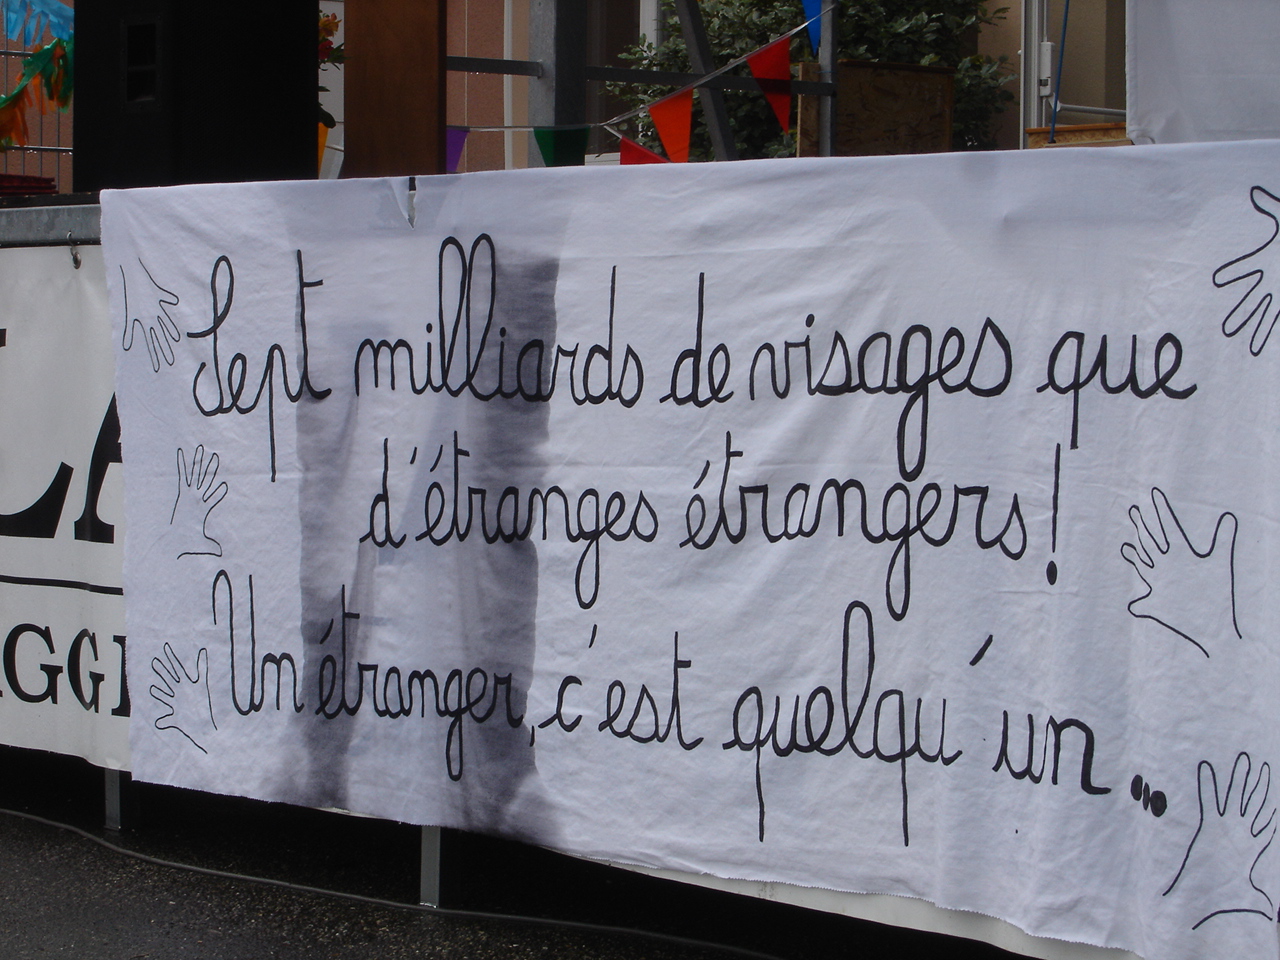 Sept milliards de visages que
d'étranges étrangers!
Un étranger, c'est quelqu'un...
LA
AGGI